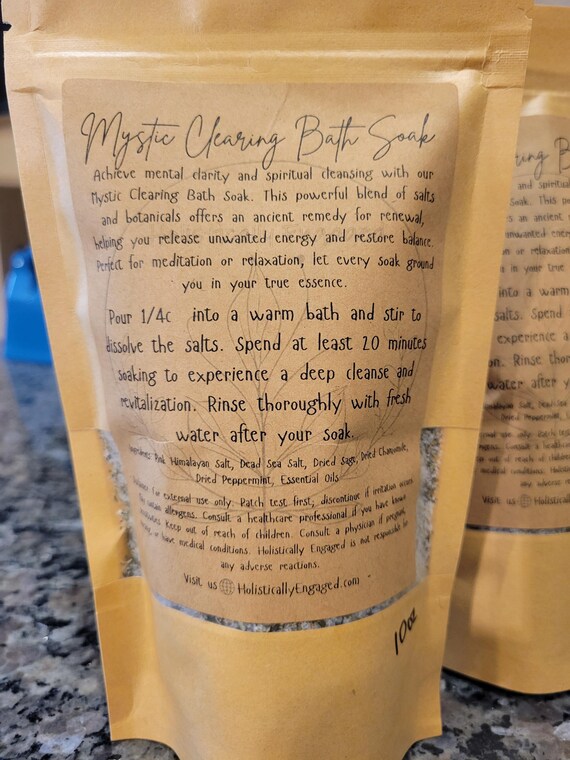 Mystic Clearing Bath Soak
Achieve mental clarity and spiritual cleansing with our
Mystic Clearing Bath Soak. This powerful blend of salts
and botanicals offers an ancient remedy for renewal,
helping you release unwanted energy and restore balance.
Perfect for meditation or relaxation, let every soak ground
you in your true essence.
Pour 1/4c into a warm bath and stir to
dissolve the salts. Spend at least 20 minutes
soaking to experience a deep cleanse and
revitalization. Rinse thoroughly with fresh
water after your soak.
Pink Himalayan Salt, Dead Sea Salt, Dried Sage, Dried Chamomile,
Dried Peppermint, Essential Oils
For external use only. Patch test first, discontinue if irritation occurs
allergens. Consult a healthcare professional if you have known
Keep out of reach of children. Consult a physician if pregnant,
or have medical conditions. Holistically Engaged is not responsible for
any adverse reactions.
Visit us HolisticallyEngaged.com
10oz
and spiritual
Soak. This
an ancient
or relaxation
in your true
into a warm
salts. Spend
experience a
Rinse
water after
Visit us